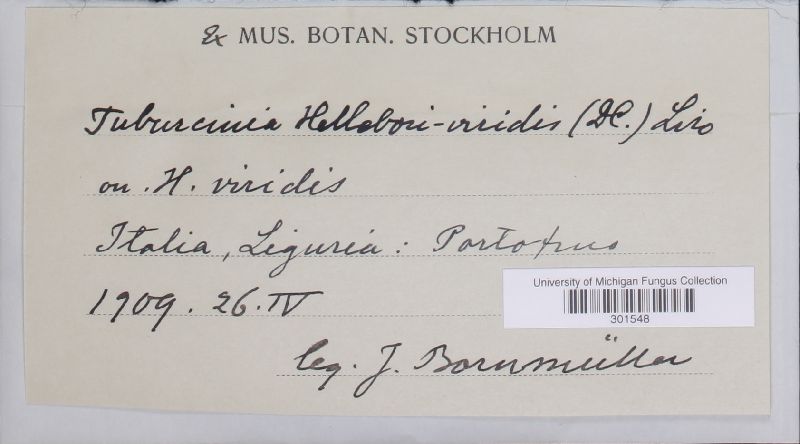 Ex MUS. BOTAN. STOCKHOLM
Tuburcinia Hellebori-viridis (DC.) Liro
on. H. viridis
Italia, Liguria: Portofino
1909. 26. IV
University of Michigan Fungus Collection
301548
leg. J. Bornmüller